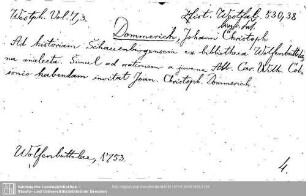 Westph. Vol. 1, 3.
Hist. Westfal. 530, 32
Dommerich, Johann Christoph
Ad historiam Schauenburgensem ex bibliotheca Wolfenbuttela
na analecta. Simul ad orationem a iuvene Abb. Car. Wilh.
habendam invitat Joan. Christoph. Dommerich
Wolfenbuttelae, 1753.
4.
Sächsische Landesbibliothek -
Staats- und Universitätsbibliothek Dresden